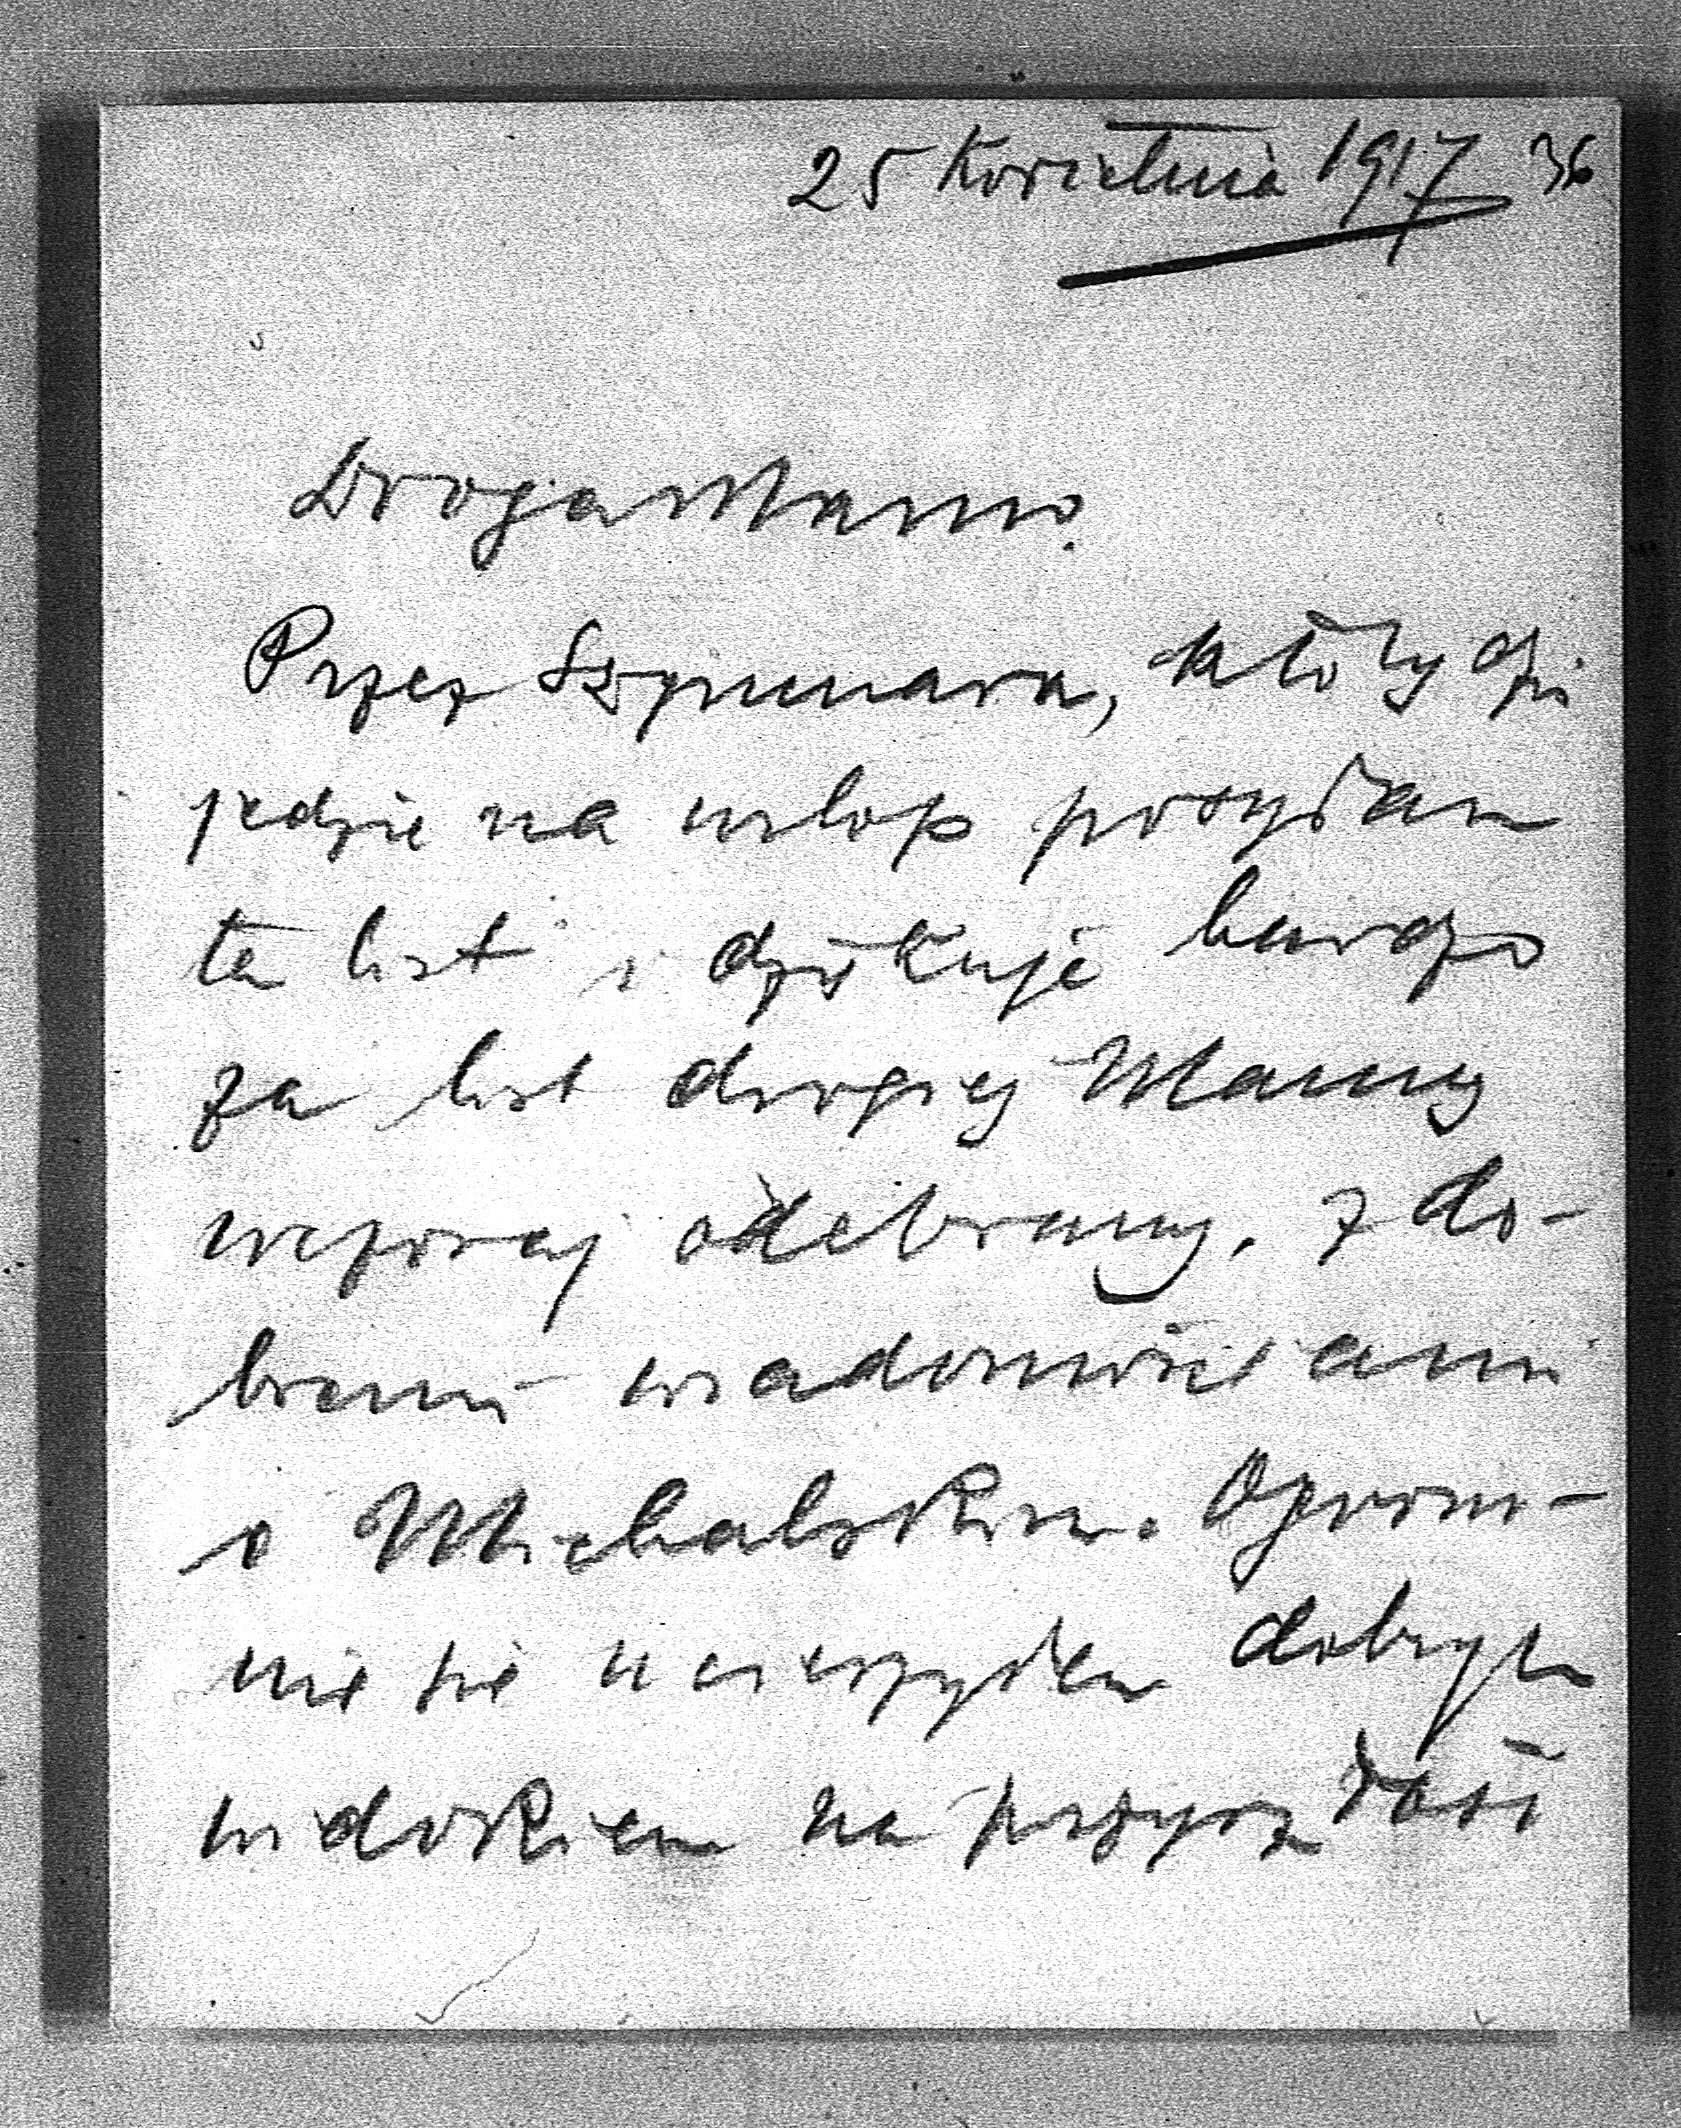 25 Kwietnia 1917 36
Droga Mamo.
Przez Szymura, który dziś
jedzie na urlop posyłam
ten list i dziękuję bardzo
za list drogiej Mamy
wczoraj odebrany, z do-
bremi wiadomościami
o Michalskim. Ogrom-
nie się ucieszyłem dobrym
widokiem na przyszłość